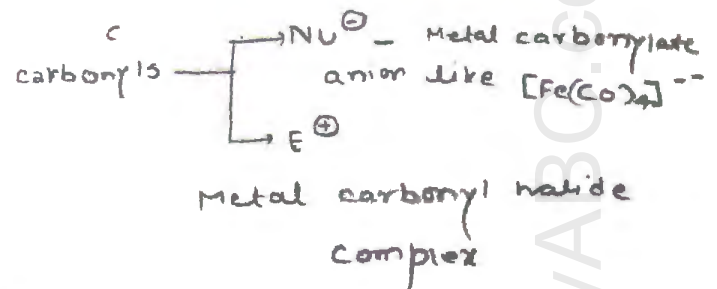 C
carbonyls → Nu⊖ - Metal carbonylate
anion like [Fe(CO)4]--
→ E⊕
Metal carbonyl halide
complex